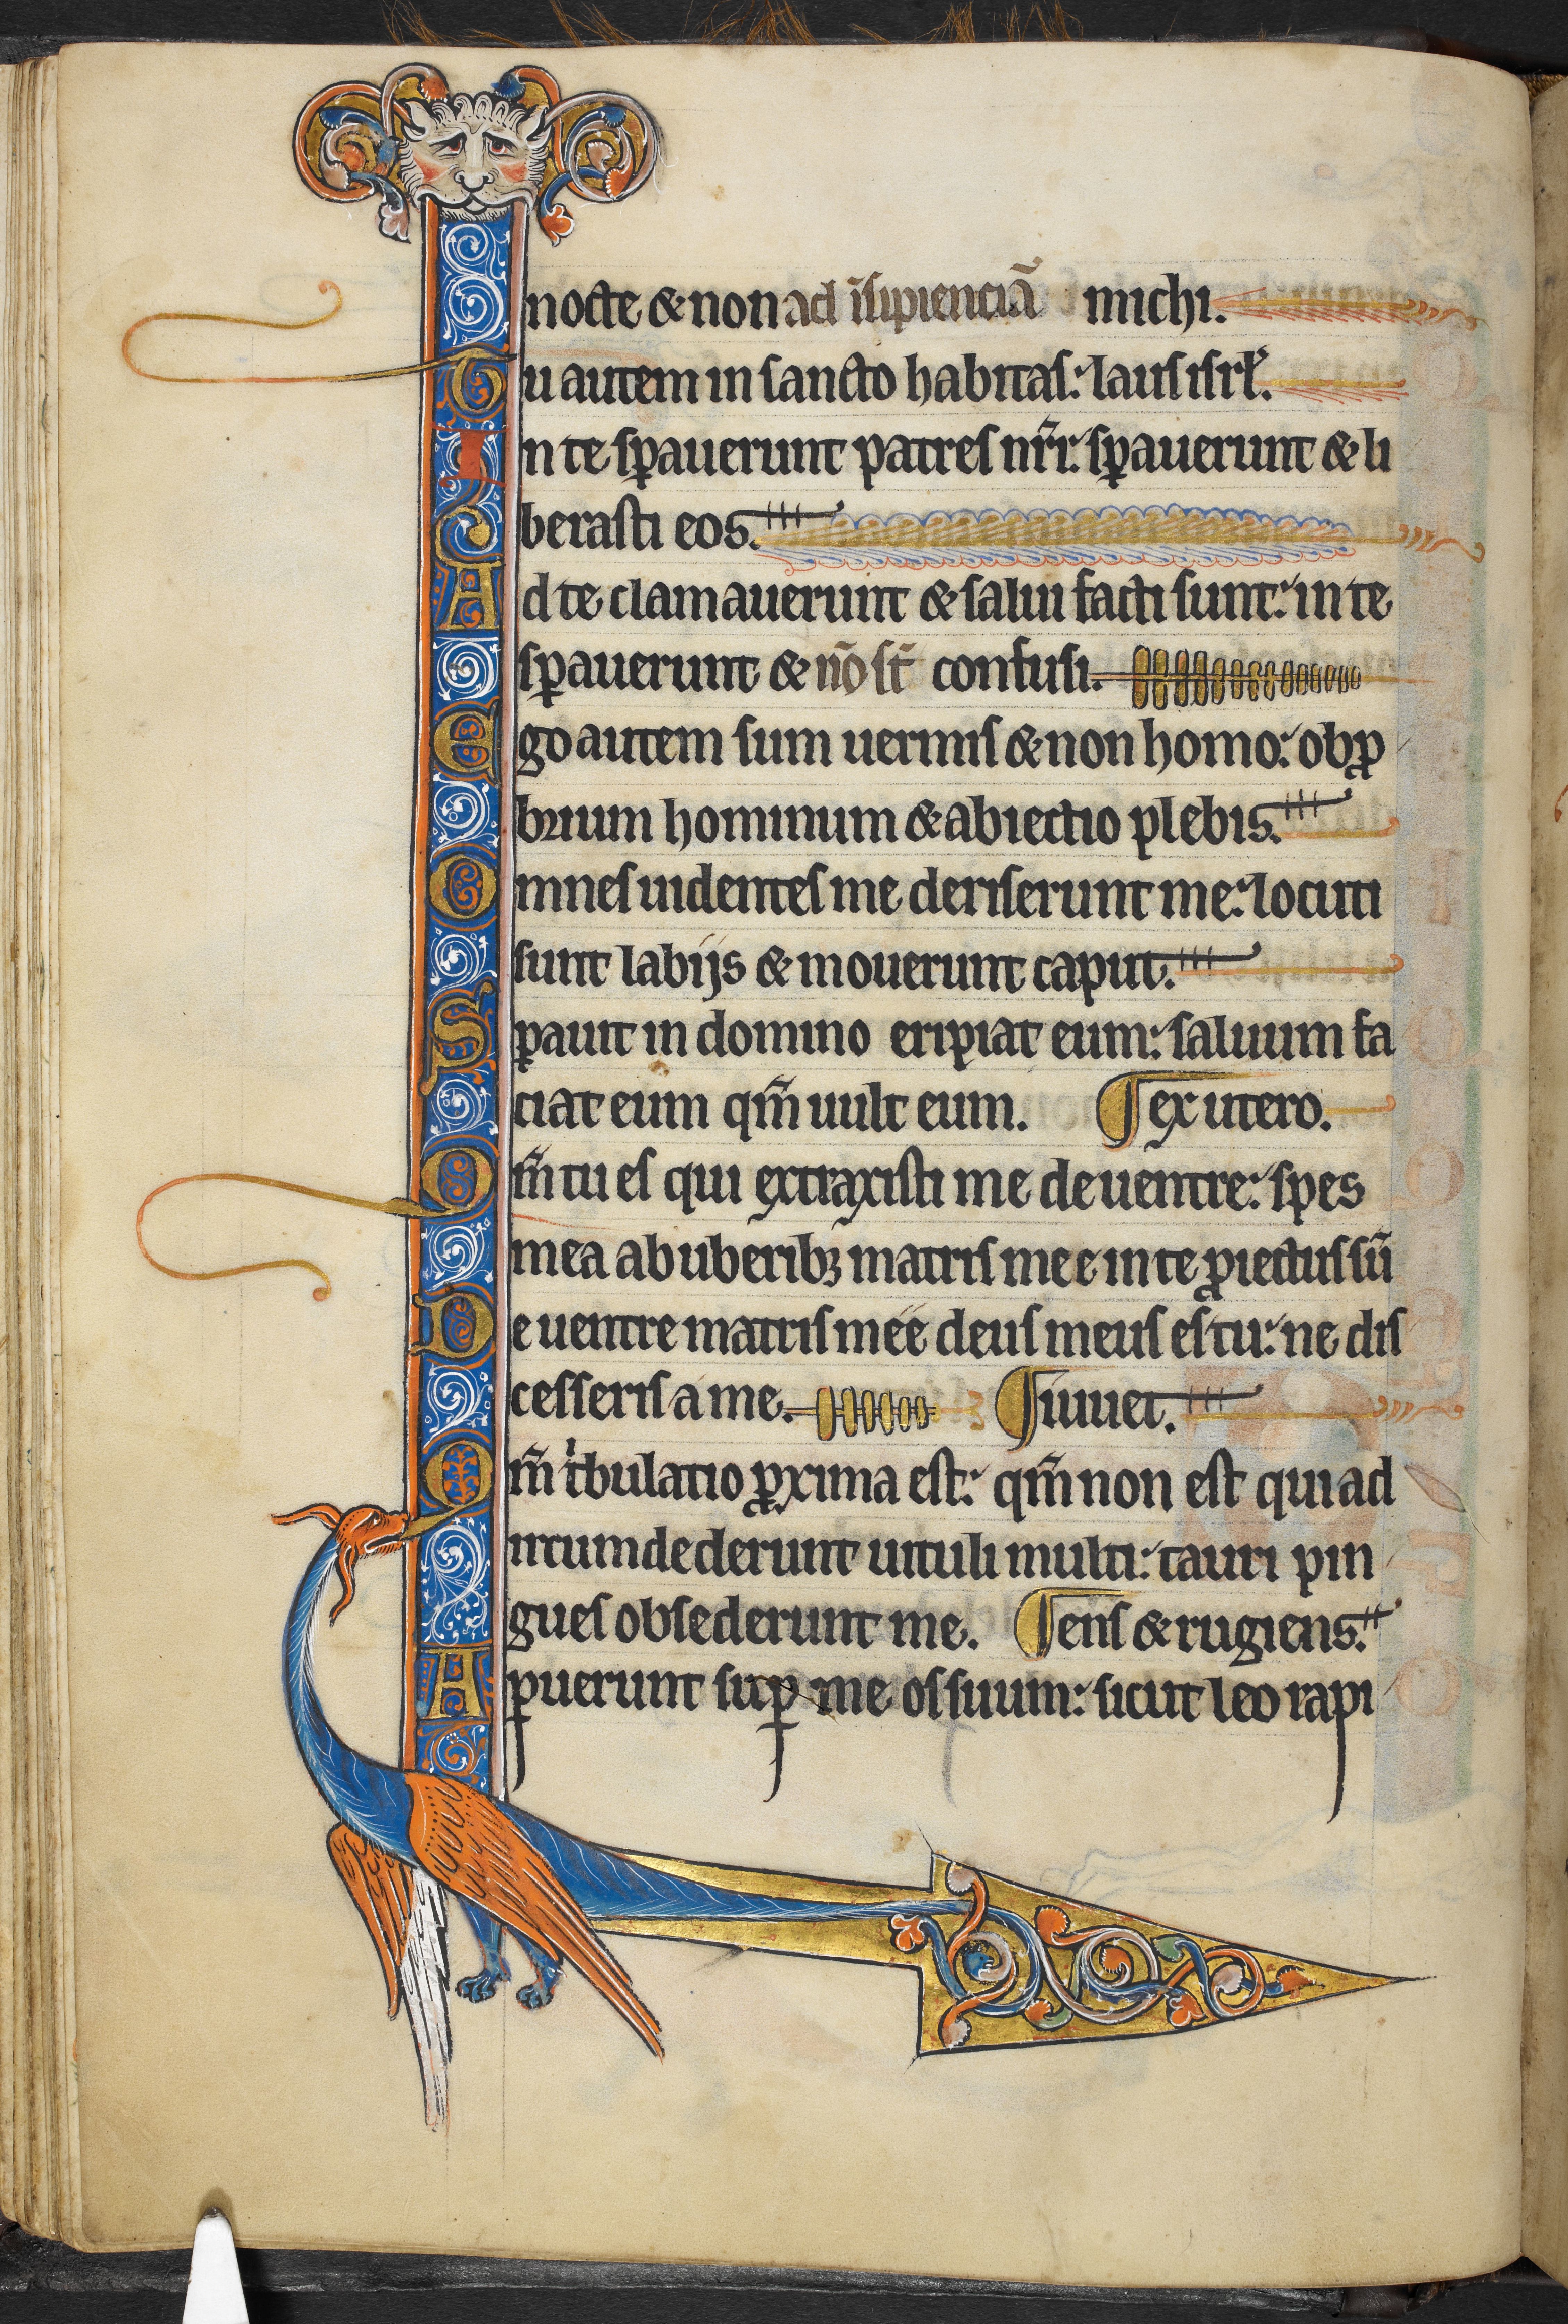 nocte & non ad ĩsipienciã michi.
Tu autem in sancto habitas: laus isrł.
In te sꝑauerunt patres nr̃i: sꝑauerunt & li
berasti eos.
Ad te clamauerunt & salui facti sunt: in te
sꝑauerunt & nõ st̃ confusi.
Ego autem sum uermis & non homo: obꝓ
brium hominum & abiectio plebis.
Omnes uidentes me deriserunt me: locuti
sunt labijs & mouerunt caput.
Sꝑauit in domino eripiat eum: saluum fa
ciat eum qm̃ uult eum. ¶ ex utero.
Qm̃ tu es qui extraxisti me de uentre: spes
mea ab uberibꝫ matris mee in te ꝓiectus sũ
De uentre matris mee deus meus es tu: ne dis
cesseris a me. ¶ iuuet.
Qm̃ tͥbulatio ꝓxima est: qm̃ non est qui ad
ircumdederunt uituli multi: tauri pin
gues obsederunt me. ¶ ens & rugiens.
Apuerunt suꝑ me os suum: sicut leo rapi